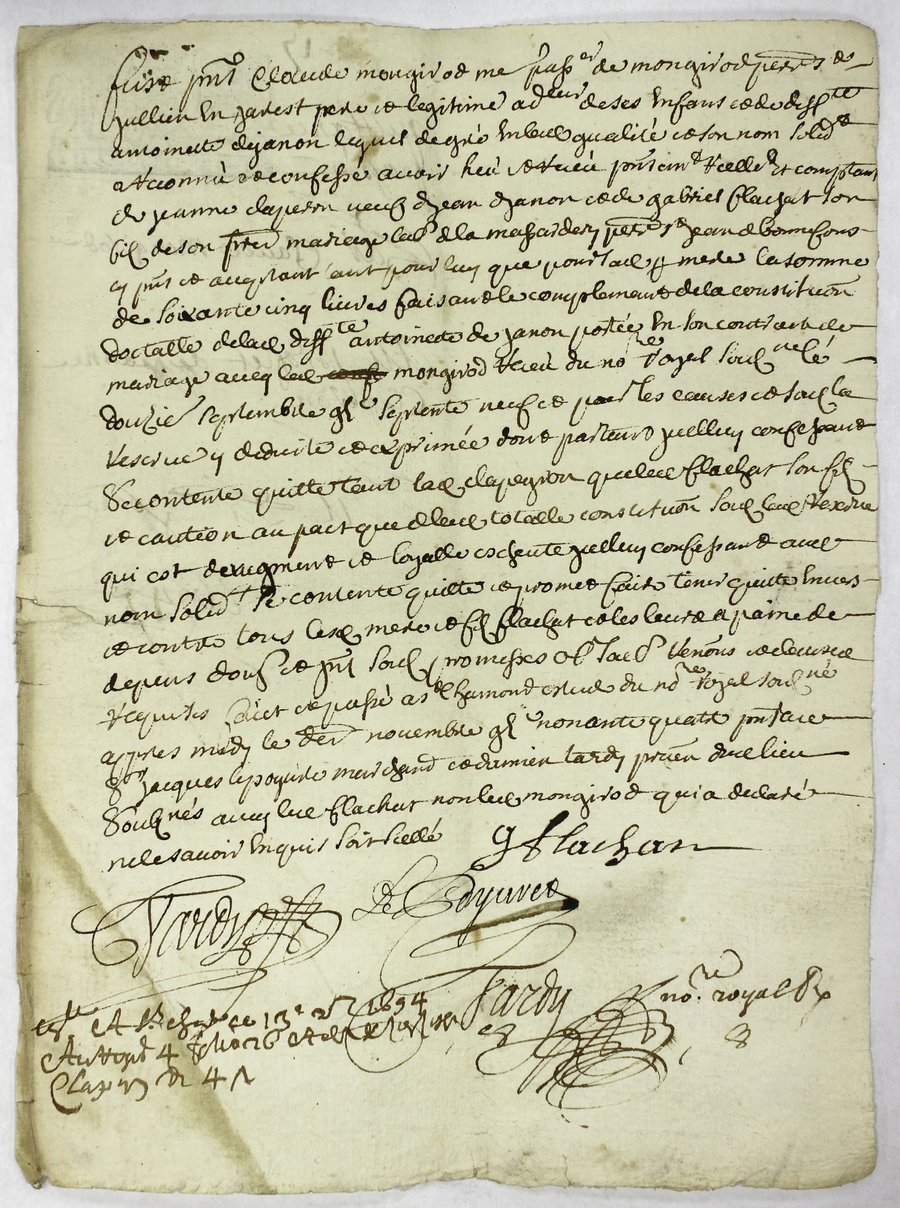 fust pnt Claude mongirod me pasr de mongirod perre st
jullien En jarest pere et legitime admeur de ses Enfans et de deffte
antoinette dejanon lequel de gré En lad qualité et son nom solidre
a Reconnu et confessé avoir heu et Receu pntemt Reellemt et comptant
de jeanne clapeyron veufe de jean de janon et de gabriel flachat son
filz de son premier mariage labr de la massardery perre st jean de bonnefons
cy pnt et acceptant tant pour luy que pour sad mere la somme
de soixante cinq livres faisant le complement de la constitution
doctalle de lad deffte antoinette de janon portée En son contract de
mariage avec led mongirod Receu du nore Royal soubsné le
douzie septembre gbic septente neuf et pour les causes et sans la
Reserve y deduite et exprimée dont partant jcelluy confessant
Se contente quitte tant lad clapeyron que led flachat son filz
et caution au pact que de lad totalle constitution
qui est d'augment et loyalle escheute jcelluy confessant aud
nom solidre se contente quitte et promet faire tenir quitte Envers
et contre tous lesd mere et filz flachat et les leurs a paine de
depens dom et jnt soubz promesses obls sacr Renons et clauses
Requises faict et passé a st chamond estude du nore royal soubsné
appres midy le der novembre gbic nonante quatre pntz
Sr jacques lepoyvre marchand et damien tardy praen dud lieu
Soubsnés avec led flachat non led mongirod qui a declaré
ne le savoir Enquis soit scellé
g flachat
Tardy Le poyvre
Tardy nore royal
A St chd ce 13e xbr 1694
4 fo 26
4 s